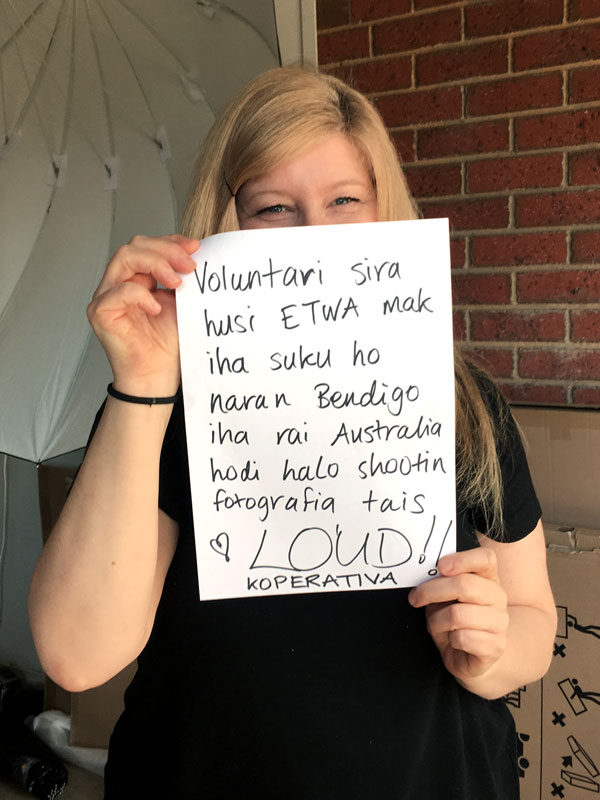 Voluntari sira
husi ETWA mak
iha suku ho
naran Bendigo
iha rai Australia
hodi halo shootin
fotografia tais
♡ LO'UD!!
KOPERATIVA